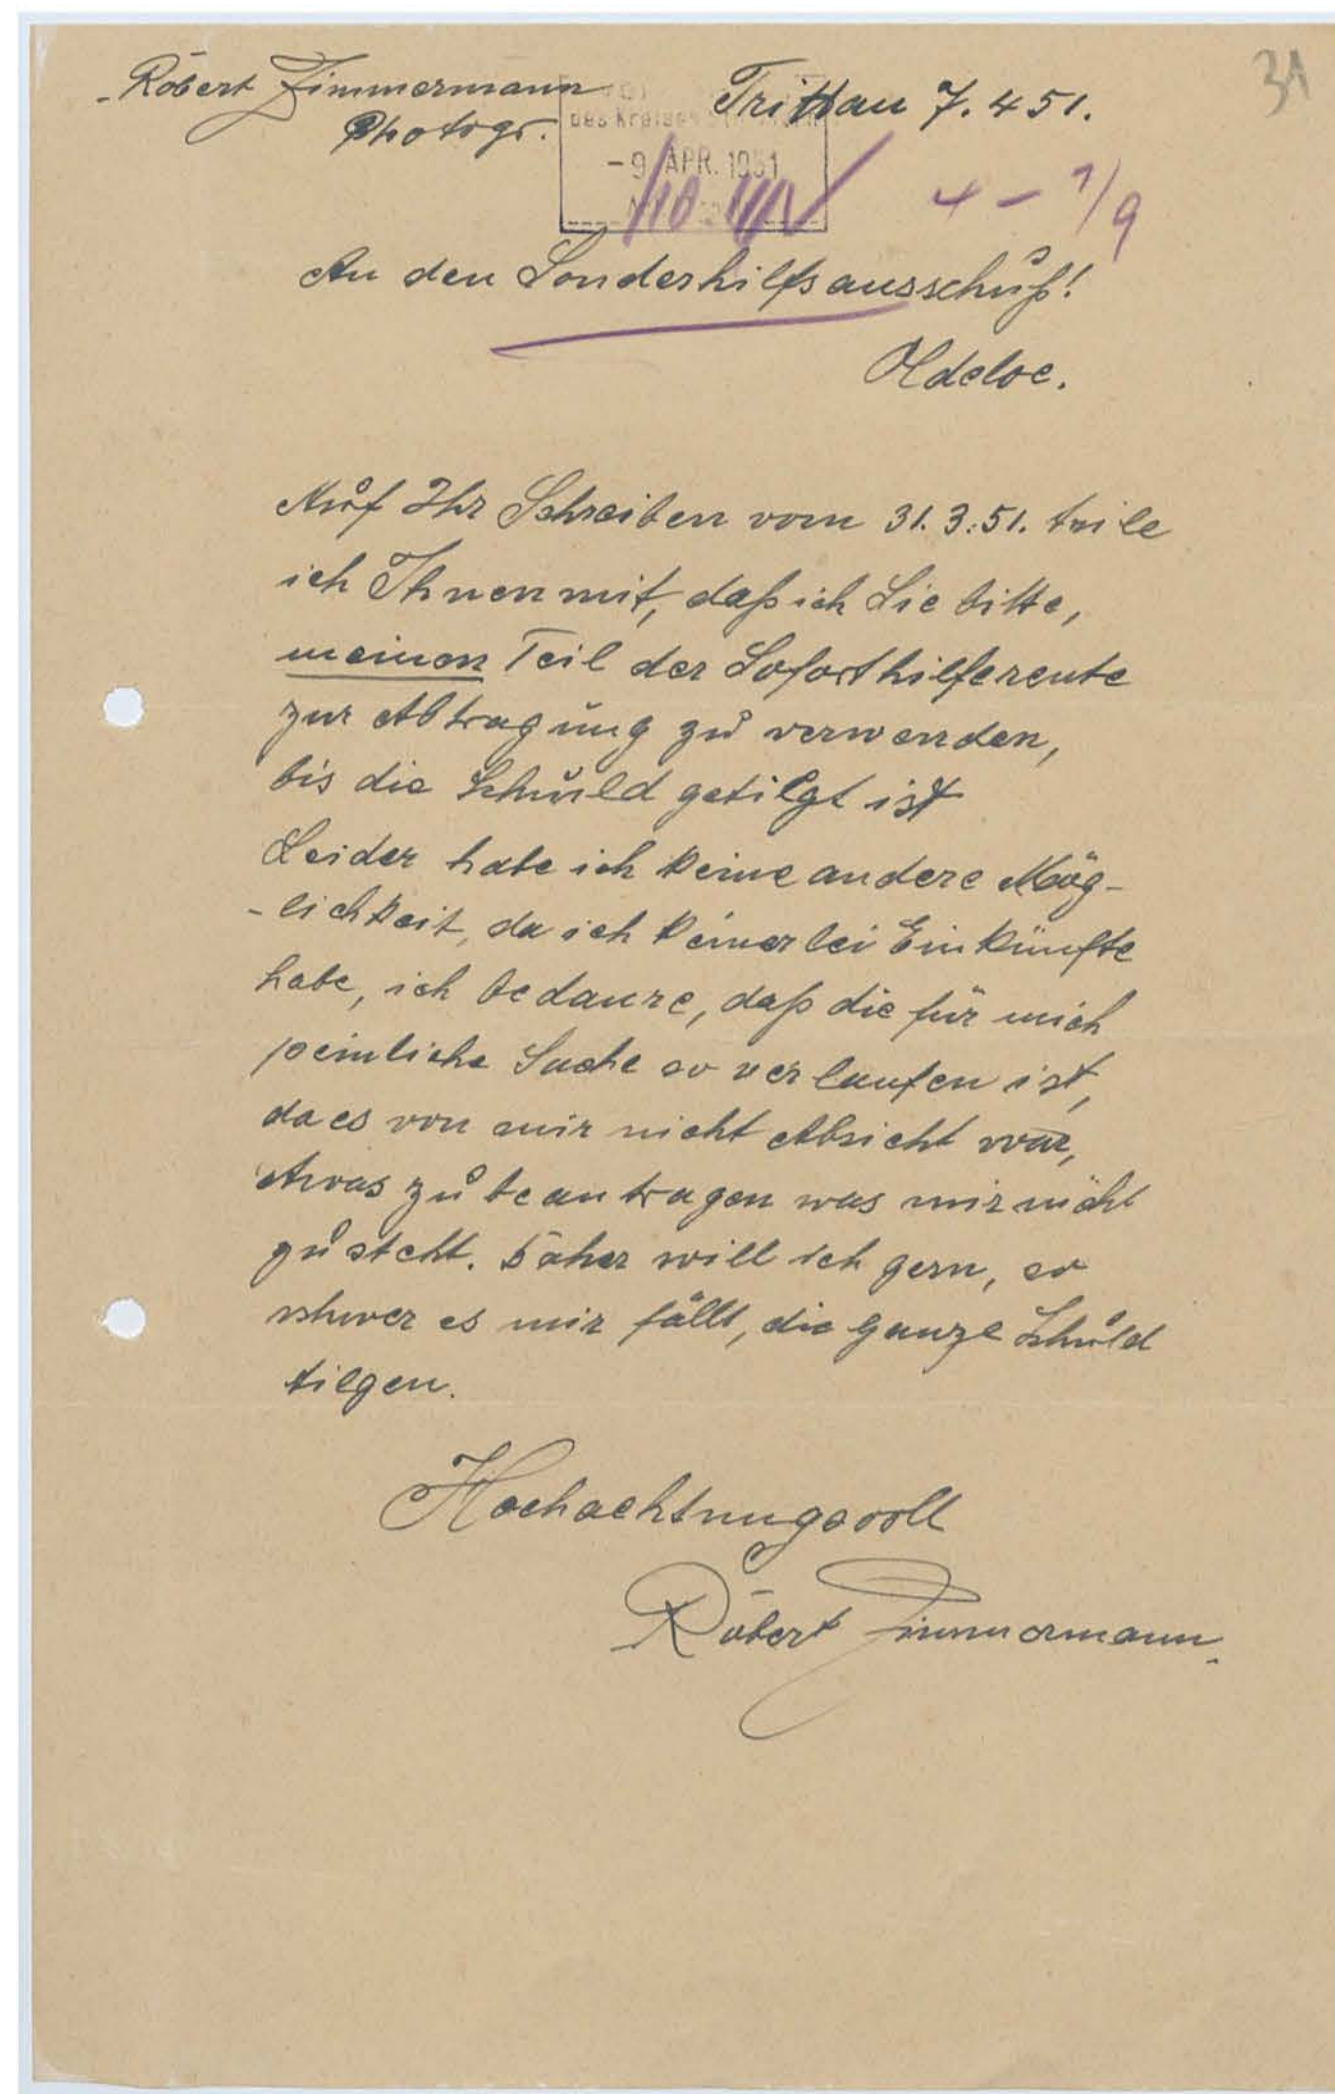 31
Robert Zimmermann
Photogr.
Trittau 7. 4 51.
des Kreises
- 9. APR. 1951
4 - 7/9
An den Sonderhilfsausschuß!
Oldeloe.
Auf Ihr Schreiben vom 31. 3. 51. teile
ich Ihnen mit, daß ich Sie bitte,
meinen Teil der Soforthilferente
zur Abtragung zu verwenden,
bis die Schuld getilgt ist
Leider habe ich keine andere Mög-
-lichkeit, da ich keinerlei Einkünfte
habe, ich bedaure, daß die für mich
peinliche Sache so verlaufen ist,
da es von mir nicht Absicht war,
etwas zu beantragen was mir nicht
zusteht. Daher will ich gern, so
schwer es mir fällt, die ganze Schuld
tilgen.
Hochachtungsvoll
Robert Zimmermann.